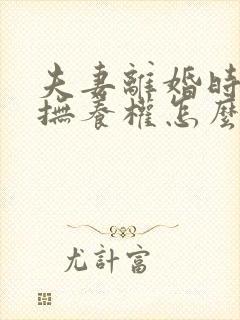 夫妻離婚時
撫養權怎麼
尤計富